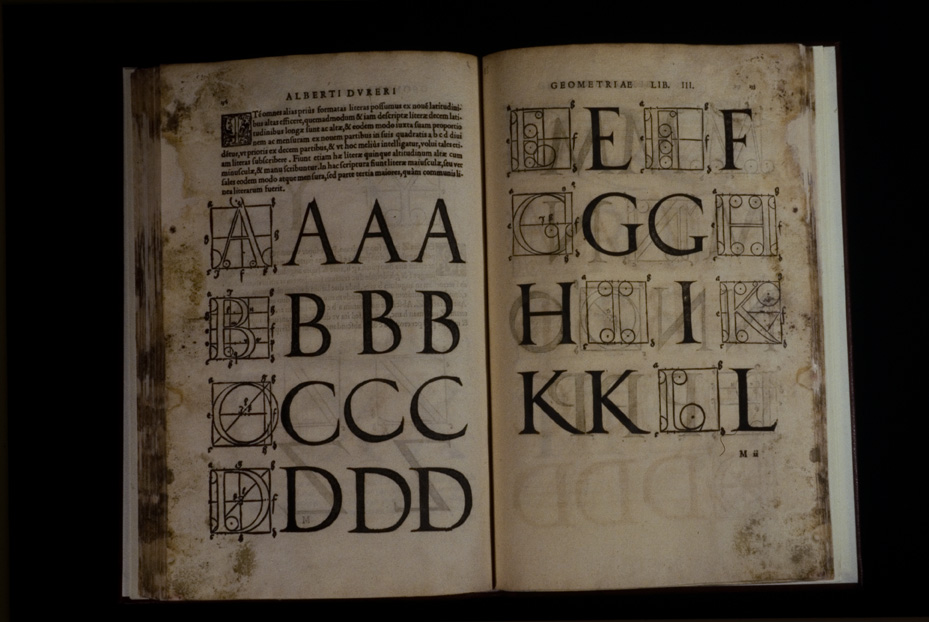 ALBERTI DVRERI
Ti omnes alias priùs formatas literas possumus ex noua latitudini-
bus altas efficere, quemadmodum & iam descriptæ literæ decem lati-
tudinibus longæ sunt ac altæ, & eodem modo iuxta suam proportio
nem ac mensuram ex nouem partibus in suis quadratis a b c d diui
ditur, vt prioris ex decem partibus, & vt hoc meliùs intelligatur, volui tales eti-
am literas subscribere. Fiunt etiam hæ literæ quinque altitudinum altæ cum
minusculæ, & manu scribuntur. In hac scriptura fiunt literæ maiusculæ, seu ver
sales eodem modo atque mensura, sed parte tertia maiores, quàm communis li-
nea literarum fuerit.
A A A A
B B B B
C C C C
D D D D
GEOMETRIAE LIB. III.
E E F F
G G G H
H I I K
K K L L
M ii